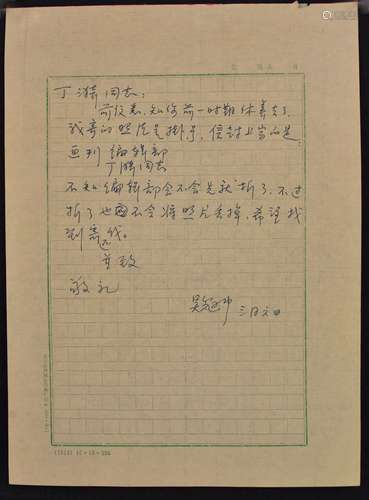 丁涛同志:
前信悉,知你前一时期休养去了,
我寄的照片是挂号,信封上写的是:
画刊编辑部
丁涛同志
不知编辑部会不会是我拆了,不过
拆了也不会将照片丢掉,希望找
到寄还我。
并致
敬礼
三月六日
15×20=300